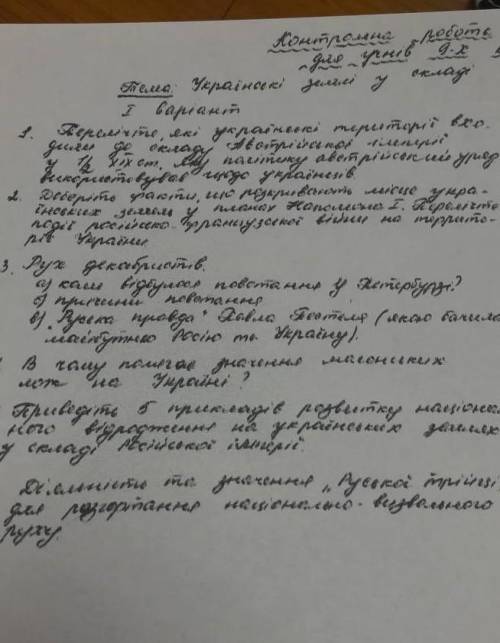 Контрольна робота
для учнів 9-х
Тема: Українські землі у складі
I варіант
1. Перелічіть, які українські території вхо-
дили до складу Австрійської імперії
у 1/2 XIX ст. Яку політику австрійський уряд
використовував щодо українців.
2. Доберіть факти, що розкривають місце укра-
їнських земель у планах Наполеона I. Перелічіть
події російсько-французької війни на терито-
рів України.
3. Рух декабристів.
а) коли відбулося повстання у Петербурзі?
б) причини повстання
в) "Руська правда" Павла Пестеля (якою бачила
майбутню Росію та Україну).
В чому полягає значення масонських
лож на Україні?
Приведіть 5 прикладів розвитку націона
ного відродження на українських землях
у складі Російської імперії.
Діяльність та значення "Руської трійці
для розгортання національно-визвольного
руху.